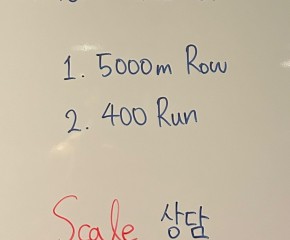 1. 5000m Row
2. 400 Run
Scale 상담